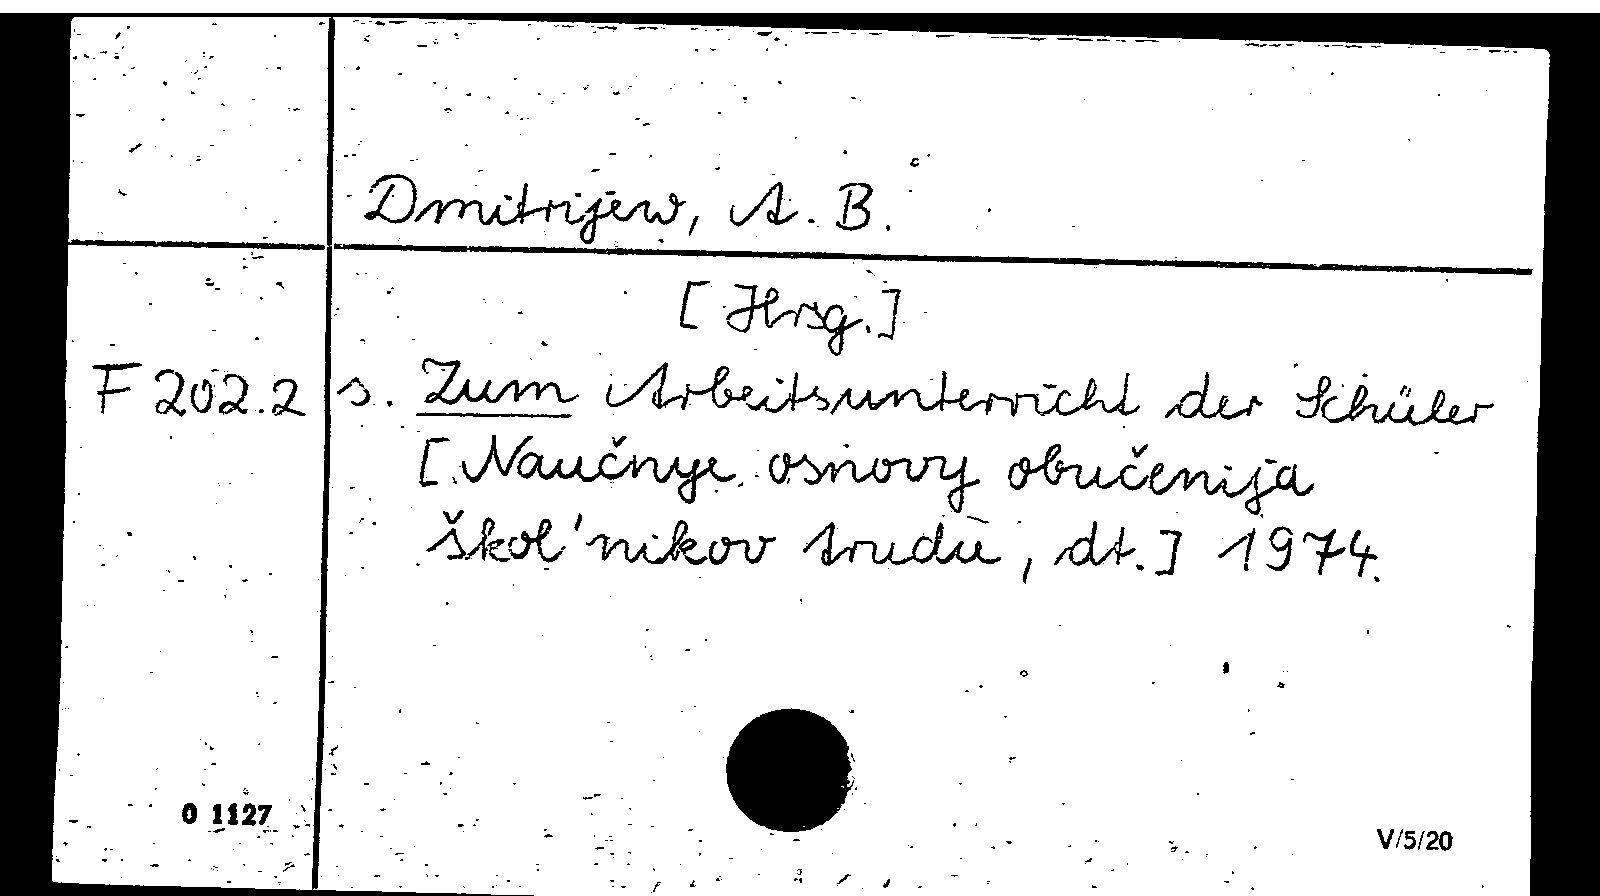 Dmitrijew, A. B.
[Hrsg.]
F 202.2 s. Zum Arbeitsunterricht der Schüler
[Naučnye osnovy obučenija
škol'nikov trudu, dt.] 1974.
0 1127
V/5/20